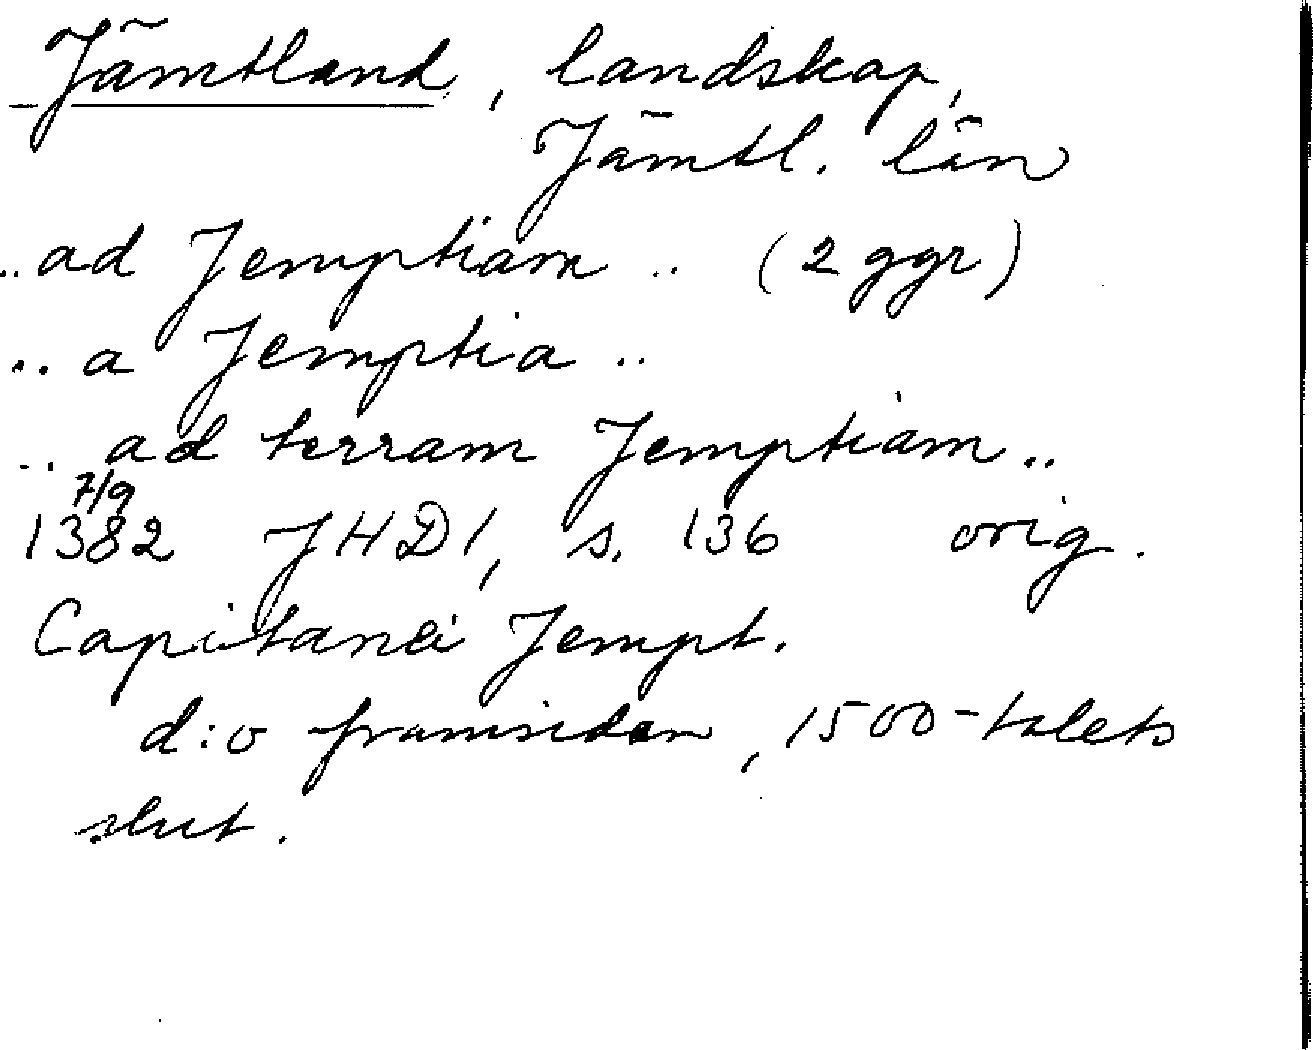 Jämtland, landskap,
Jämtl. län
..ad Jemptiam .. (2 ggr)
.. a Jemptia ..
.. ad terram Jemptiam ..
7/9
1382 JHD1, s. 136 orig.
Capitanei Jempt.
d:o framsidan, 1500-talets
slut.